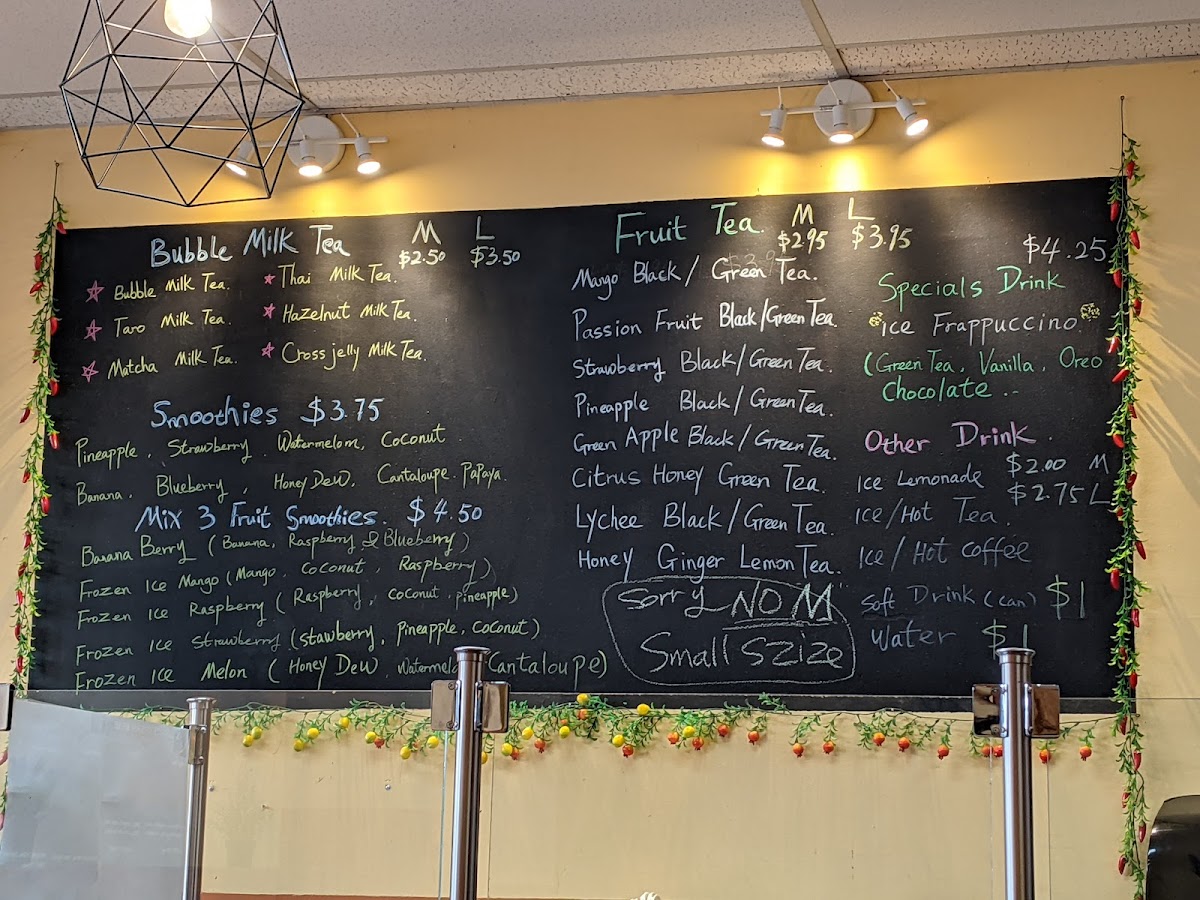 Bubble Milk Tea M L
$2.50 $3.50
Bubble Milk Tea. Thai Milk Tea.
Taro Milk Tea. Hazelnut Milk Tea.
Matcha Milk Tea. Cross jelly Milk Tea.
Smoothies $3.75
Pineapple, Strawberry Watermelom, Coconut
Banana, Blueberry, Honey Dew, Cantaloupe. Papaya.
Mix 3 Fruit Smoothies. $4.50
Banana Berry (Banana, Raspberry & Blueberry)
Frozen Ice Mango (Mango, Coconut, Raspberry)
Frozen Ice Raspberry (Raspberry, coconut, pineapple)
Frozen Ice Strawberry (stawberry, Pineapple, Coconut)
Frozen Ice Melon (Honey Dew, Watermelo Cantaloupe)
Fruit Tea. M L
$2.95 $3.95
Mango Black/Green Tea.
Passion Fruit Black/Green Tea.
Strawberry Black/Green Tea.
Pineapple Black/Green Tea.
Green Apple Black/Green Tea.
Citrus Honey Green Tea.
Lychee Black/Green Tea.
Honey Ginger Lemon Tea.
Sorry NO M
Small Szize
$4.25
Specials Drink
ice Frappuccino.
(Green Tea, Vanilla, Oreo
Chocolate ..
Other Drink.
Ice Lemonade $2.00 M
$2.75 L
Ice/Hot Tea.
Ice/Hot coffee
Soft Drink (can) $1
Water $1